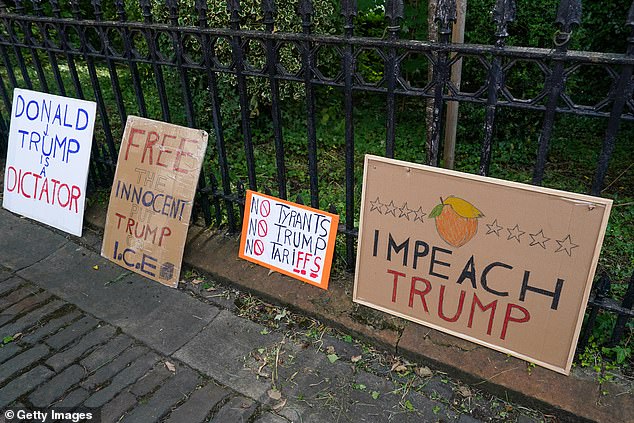 DONALD
J
TRUMP
IS
A
DICTATOR
FREE
THE
INNOCENT
TRUMP
I.C.E
NO TYRANTS
NO TRUMP
NO TARIFFS
IMPEACH
TRUMP
© Getty Images